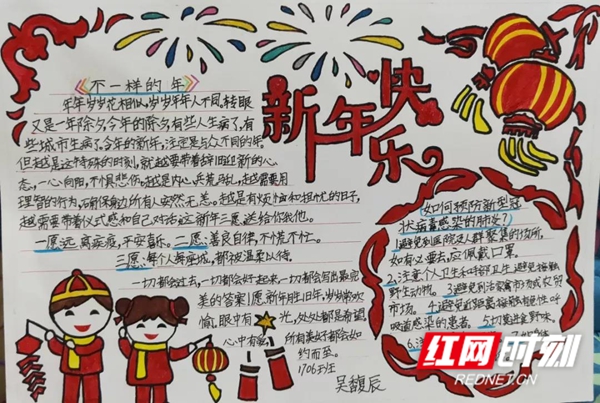 新年快乐
《不一样的年》
年年岁岁花相似,岁岁年年人不同,转眼
又是一年除夕,今年的除夕,有些人生病了,有
些城市生病了,今年的新年,注定是与众不同的年,
但越是这特殊的时刻,就越要带着辞旧迎新的心
态,一心向阳,不惧悲伤,越是内心兵荒马乱,越是需要用
理智的行为,确保身边所有人安然无恙。越是有烦恼和担忧的日子,
越需要带着仪式感和自己对话,这新年三愿,送给你我他。
一愿:远离疾疫,平安喜乐。二愿:善良自律,不慌不忙。
三愿:每个人每座城,都被温柔以待。
一切都会过去,一切都会好起来,一切都会写出最完
美的答案!愿新年胜旧年,岁岁常欢
愉,眼中有光,处处都是希望
心中有爱,所有美好都会如
约而至。
1706班
吴馥辰
如何预防新型冠
状病毒感染的肺炎?
1.避免到医院及人群聚集的场所,
如有必要去,应佩戴口罩。
2.注意个人卫生与呼吸卫生,避免接触
野生动物。3.避免到活禽养殖或交易
市场。4.避免近距离接触急性呼
吸道感染的患者。5.切莫进食野味。
6.注
红网时刻
REDNET.CN